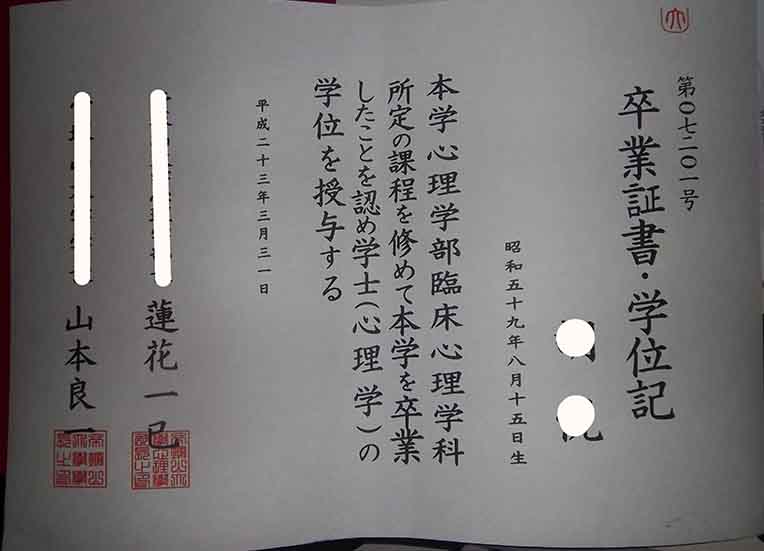 第〇七二〇一号
卒業証書・学位記
昭和五十九年八月十五日生
本学心理学部臨床心理学科
所定の課程を修めて本学を卒業
したことを認め学士(心理学)の
学位を授与する
平成二十三年三月三一日
蓮花一己
山本良一